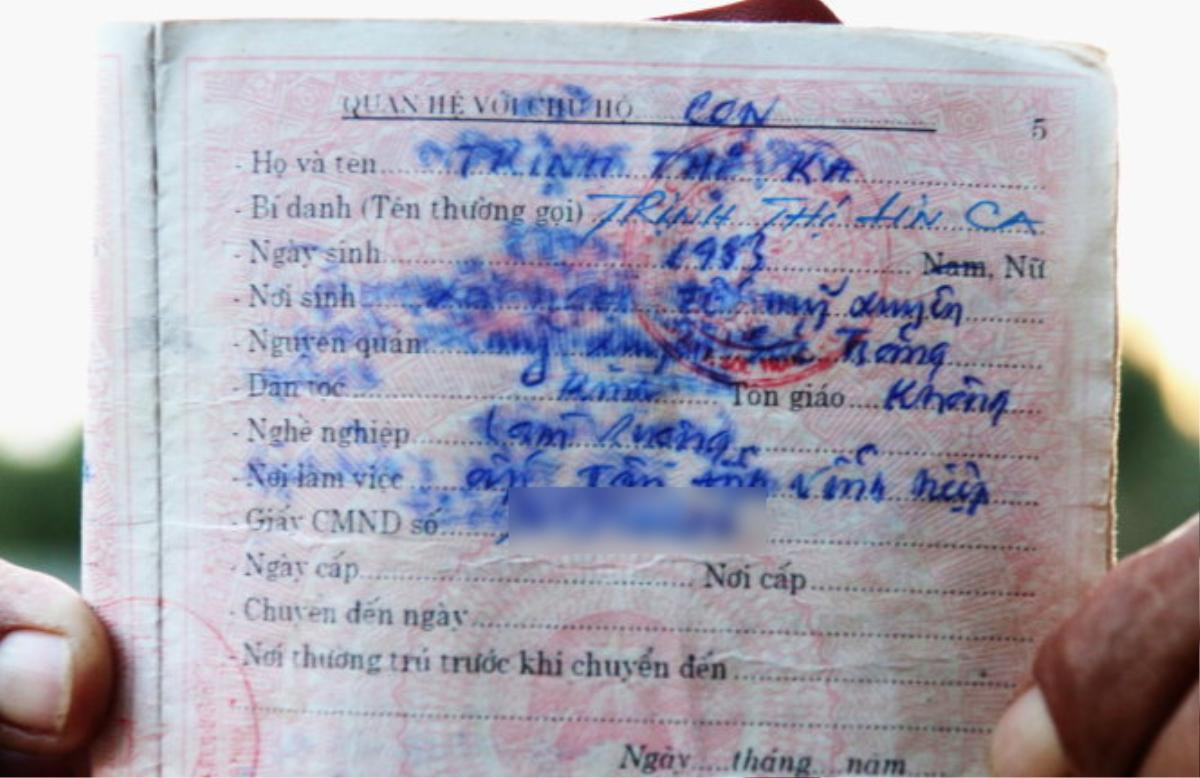 QUAN HỆ VỚI CHỦ HỘ CON
5
- Họ và tên TRỊNH THỊ KA
- Bí danh (Tên thường gọi) TRỊNH THỊ LIN CA
- Ngày sinh 1983 Nam, Nữ
- Nơi sinh mỹ xuyên
- Nguyên quán Trăng
- Dân tộc Kinh Tôn giáo Không
- Nghề nghiệp Làm Ruộng
- Nơi làm việc ấp Tân Vĩnh hiệp
- Giấy CMND số
- Ngày cấp Nơi cấp
- Chuyển đến ngày
- Nơi thường trú trước khi chuyển đến
Ngày tháng năm